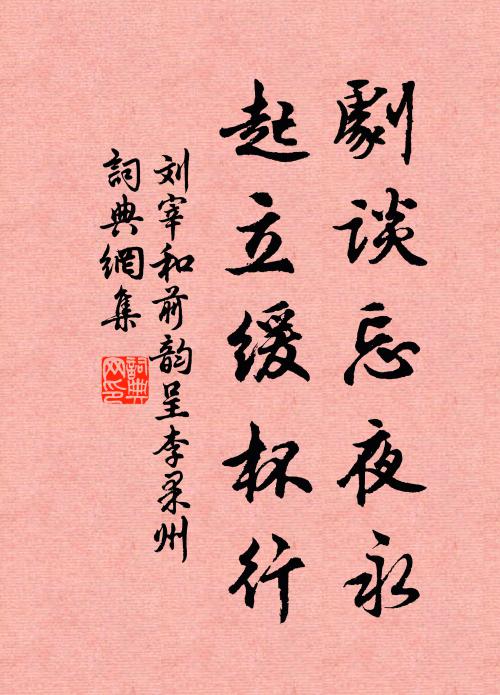 劇谈忘夜永
起立缓杯行
刘宰和前韵呈李果州
詞典網集
詞典
网印